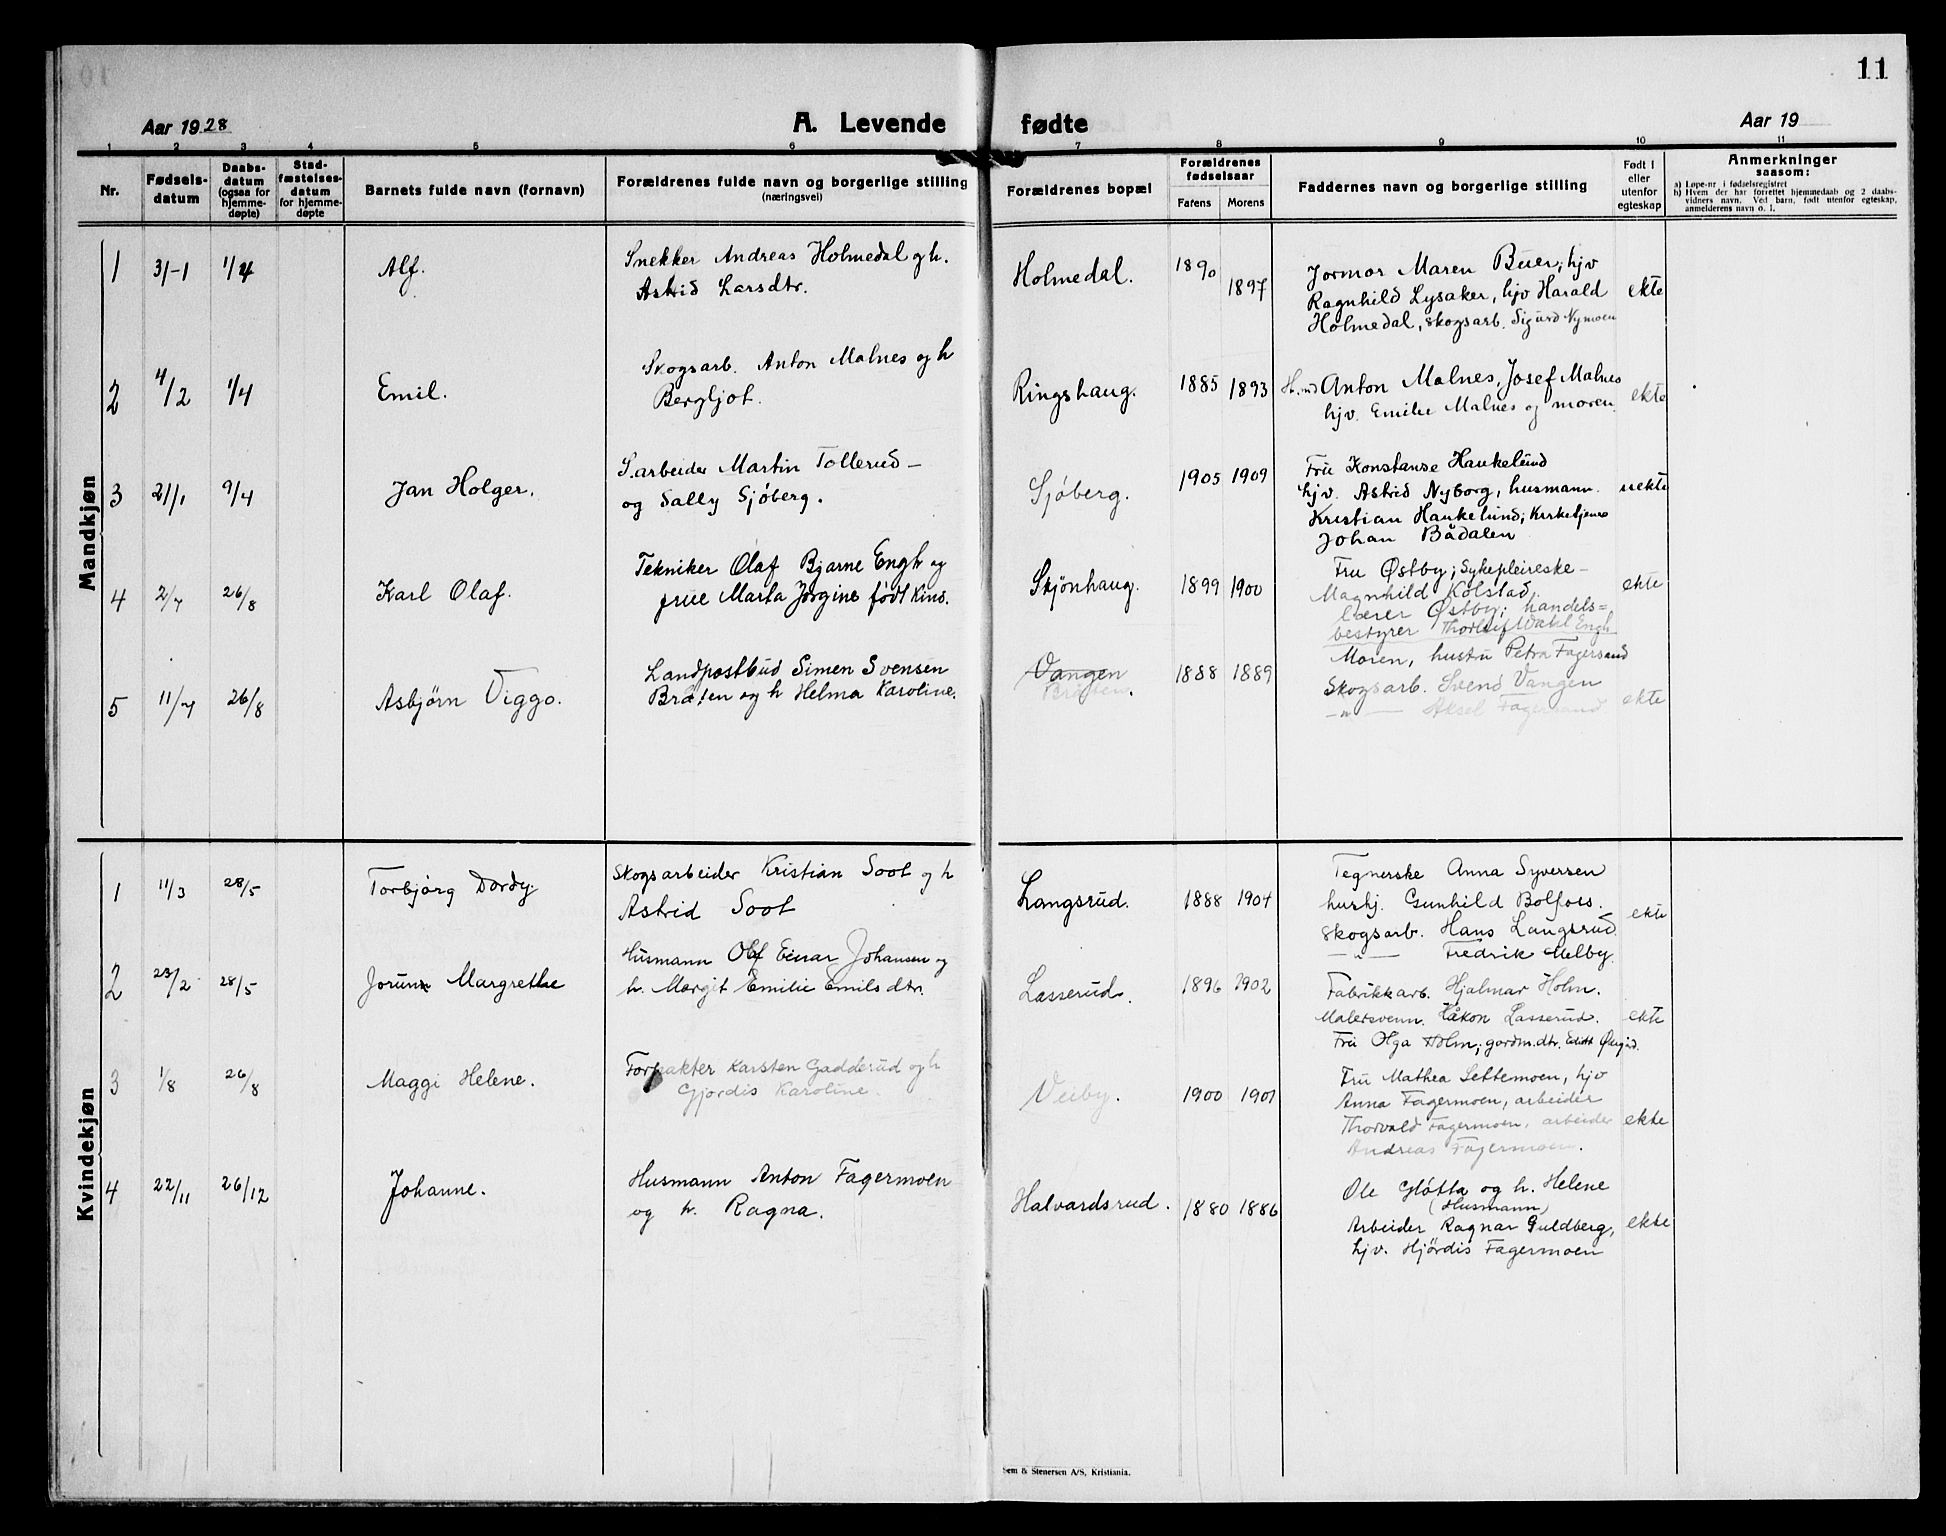 11
Aar 1928
A. Levende fødte
Aar 19
1 2 3 4 5 6 7 8 9 10 11
Nr.
Fødsels-
datum
Daabs-
datum
(ogsaa for
hjemme-
døpte)
Stad-
fæstelses-
datum
for hjemme-
døpte
Barnets fulde navn (fornavn)
Forældrenes fulde navn og borgerlige stilling
(næringsvei)
Forældrenes bopæl
Forældrenes
fødselsaar
Farens Morens
Faddernes navn og borgerlige stilling
Født i
eller
utenfor
egteskap
Anmerkninger
saasom:
a) Løpe-nr i fødselsregistret
b) Hvem der har forrettet hjemmedaab og 2 daabs-
vidners navn. Ved barn, født utenfor egteskap,
anmelderens navn o. l.
Mandkjøn
1 31-1 1/4 Alf.
Snekker Andreas Holmedal og h.
Astrid Larsdtr.
Holmedal. 1890 1897
Jormor Maren Buer; hjv
Ragnhild Lysaker, hjv Harald
Holmedal, skogsarb. Sigurd Nymoen
ekte
2 4/2 1/4 Emil.
Skogsarb. Anton Malnes og h
Bergljot.
Ringshaug. 1885 1893
Anton Malnes, Josef Malnes
hjv. Emilie Malnes og moren.
ekte
3 21/1 9/4 Jan Holger.
S.arbeider Martin Tollerud -
og Sally Sjöberg.
Sjöberg. 1905 1909
Fru Konstanse Haukelund
hjv. Astrid Nyborg, husmann
Kristian Haukelund; Kirketjener
Johan Bådalen
uekte
4 2/7 26/8 Karl Olaf.
Tekniker Olaf Bjarne Engh og
frue Marta Jörgine født Kind.
Skjönhaug. 1899 1900
Fru Østby; Sykepleireske-
Magnhild Kolstad,
lærer Østby; handels=
bestyrer Thorleif Wahl Engh
ekte
5 11/7 26/8 Asbjørn Viggo.
Landpostbud Simen Svensen
Bråten og h Helma Karoline.
Vangen
Bråten. 1888 1889
Moren, hustru Petra Fagersand
Skogsarb. Svend Vangen
-"- Aksel Fagersand
ekte
Kvindekjøn
1 11/3 28/5 Torbjörg Dordy.
Skogsarbeider Kristian Soot og h
Astrid Soot
Langsrud. 1888 1904
Tegnerske Anna Syversen
hushj. Gunhild Bolfoss.
skogsarb. Hans Langsrud
-"- Fredrik Melby.
ekte
2 23/2 28/5 Jorunn Margrethe
Husmann Olaf Einar Johansen og
h. Margit Emilie Emilsdtr.
Lasserud. 1896 1902
Fabrikkarb. Hjalmar Holm.
Malersvenn. Håkon Lasserud.
Fru Olga Holm; gardm.dtr. Edith
ekte
3 1/8 26/8 Maggi Helene.
Forpakter Karsten Gadderud og h
Gjördis Karoline.
Veiby. 1900 1901
Fru Mathea Settemoen, hjv
Anna Fagermoen, arbeider
Thorvald Fagermoen, arbeider
Andreas Fagermoen.
ekte
4 22/11 26/12 Johanne.
Husmann Anton Fagermoen
og h. Ragna.
Halvardsrud. 1880 1886
Ole Glötta og h. Helene
(Husmann)
Arbeider Ragnar Guldberg,
hjv. Hjördis Fagermoen
ekte
Sem & Stenersen A/S, Kristiania.